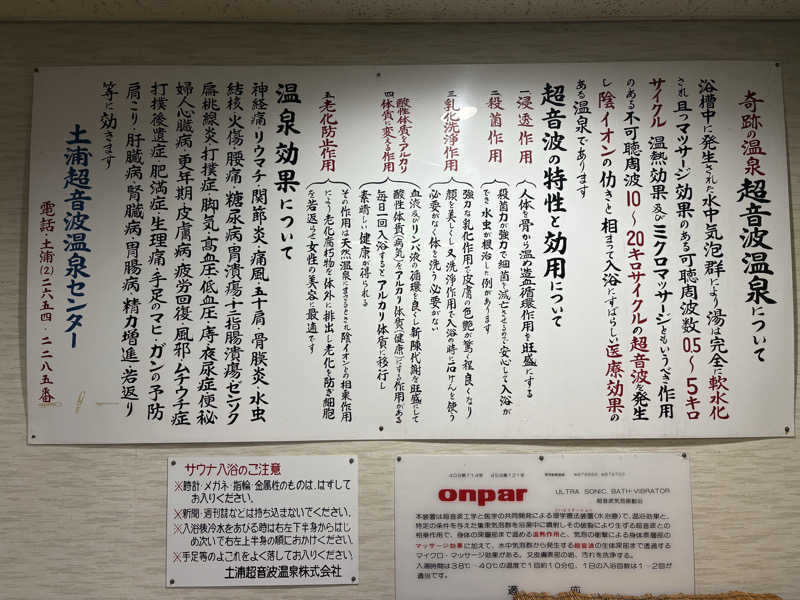 奇跡の温泉 超音波温泉について
浴槽中に発生された水中気泡群により湯は完全に軟水化
され且つマッサージ効果のある可聴周波数0.5〜5キロ
サイクル 温熱効果及びミクロマッサージともいうべき作用
のある不可聴周波10〜20キロサイクルの超音波を発生
し陰イオンの仂きと相まって入浴にすばらしい医療効果の
ある温泉であります
超音波の特性と効用について
一 浸透作用 人体を骨から温め造血循環作用を旺盛にする
二 殺菌作用 殺菌力が強力で細菌を滅亡させるので安心して入浴が
でき水虫が根治した例があります
三 乳化洗浄作用 強力な乳化作用で皮膚の色艶が驚く程良くなり
顔を美しくし又洗浄作用で入浴の時に石けんを使う
必要がなく体を洗う必要がない
四 酸性体質をアルカリ
体質に変える作用 血液及びリンパ液の循環を良くし新陳代謝を旺盛にして
酸性体質(病気)をアルカリ体質(健康)にする作用がある
毎日一回入浴するとアルカリ体質に移行し
素晴しい健康が得られる
五 老化防止作用 その作用は天然温泉にまさるとされ陰イオンとの相乗作用
により老化腐朽物を体外に排出し老化を防ぎ細胞
を若返らせ女性の美容に最適です
温泉効果について
神経痛・リウマチ・関節炎・痛風・五十肩・骨膜炎・水虫
結核・火傷・腰痛・糖尿病・胃潰瘍・十二指腸潰瘍・ゼンソク
扁桃線炎・打撲症・脚気・高血圧・低血圧・痔・夜尿症・便秘
婦人心臓病・更年期・皮膚病・疲労回復・風邪・ムチウチ症
打撲後遺症・肥満症・生理痛・手足のマヒ・ガンの予防
肩こり・肝臓病・腎臓病・胃腸病・精力増進・若返り
等に効きます
土浦超音波温泉センター
電話・土浦(2)二六五四・二二八五番
サウナ入浴のご注意
※時計・メガネ・指輪・金属性のものは、はずして
お入りください。
※新聞・週刊誌などは持ち込まないでください。
※入浴後冷水をあびる時は右左下半身からはじ
め次いで右左上半身の順におかけください。
※手足等のよごれをよく落してお入りください。
土浦超音波温泉株式会社
onpar
ULTRA SONIC, BATH-VIBRATOR
超音波気泡振動浴
本装置は超音波工学と医学の共同開発による理学療法装置(水治療)で、温浴効果と、
特定の条件を与えた集束気泡群を浴湯中に噴射しその破裂により生ずる超音波との
相乗作用で、身体の深層部まで温める温熱作用と、気泡の衝撃による身体表層部の
マッサージ効果に加えて、水中気泡群から発生する超音波の生体深部まで透過する
マイクロ・マッサージ効果がある。又皮膚表面の垢、汚れを洗浄する。
入湯時間は38℃〜40℃の温度で1回約10分位、1日の入浴回数は1〜2回が
適当です。
適 応